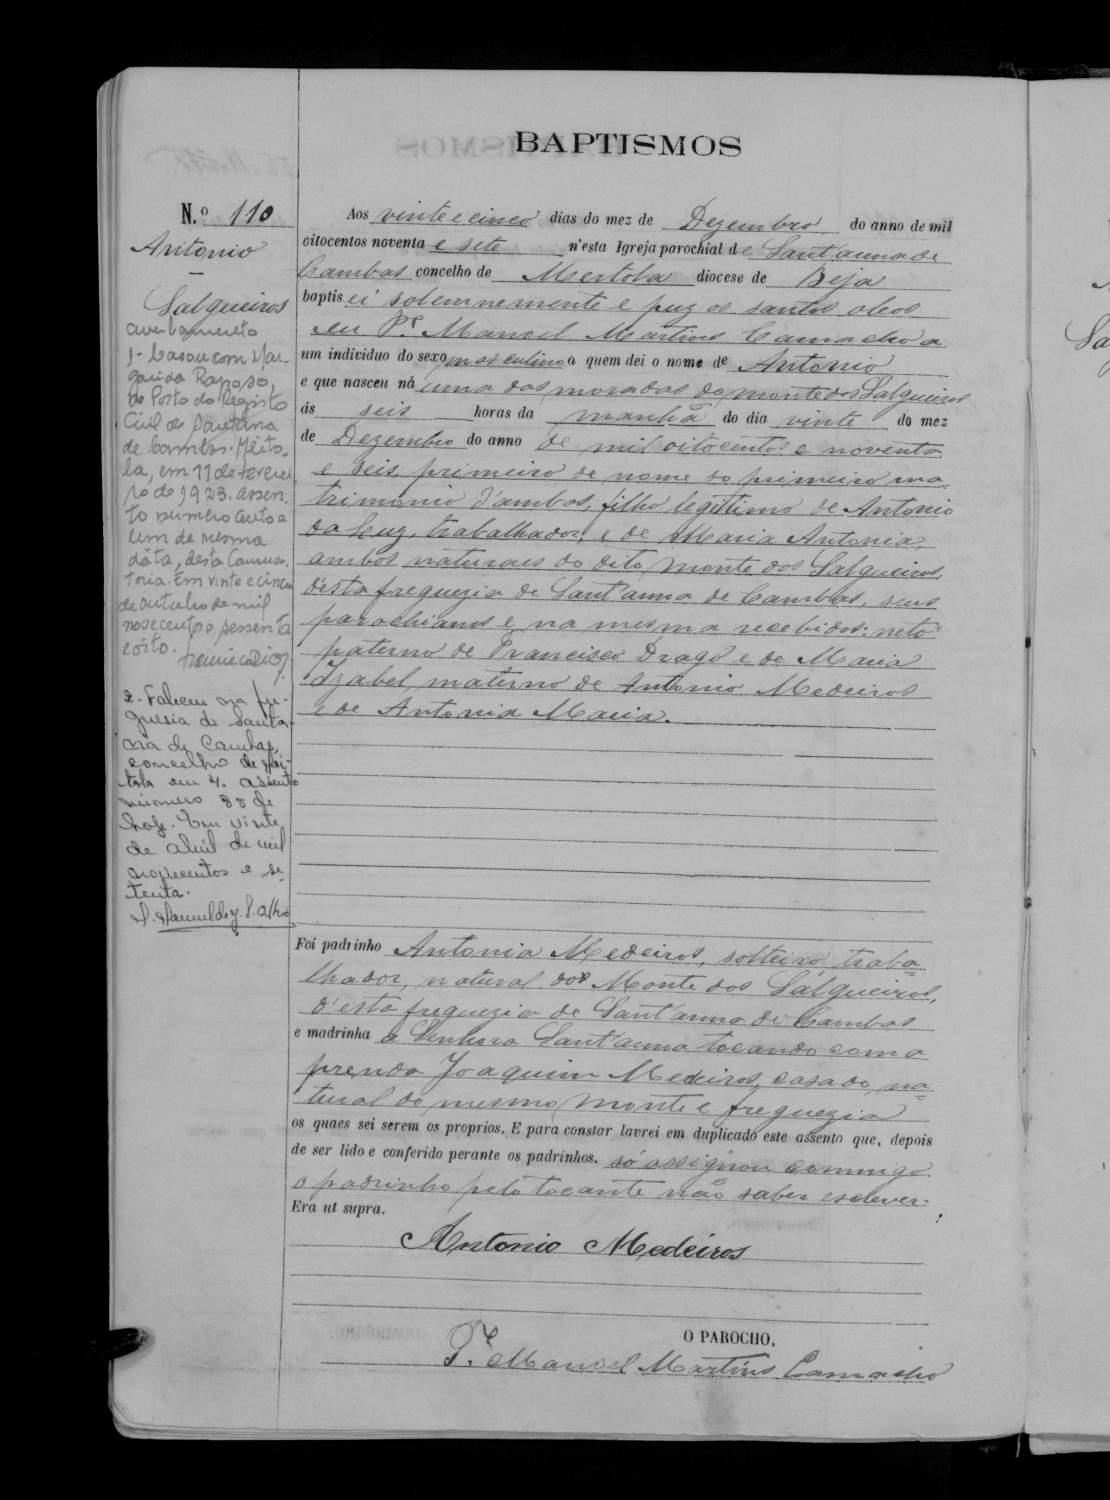 BAPTISMOS
N.º 110
Antonio
Salgueiros
Aos vinte e cinco dias do mez de Dezembro do anno de mil
oitocentos noventa e sete n'esta Igreja parochial de Sant'anna de
Cambas concelho de Mertola diocese de Beja
baptisei solemnemente e puz os santos oleos
eu P.e Manoel Martins Camacho a
um individuo do sexo masculino a quem dei o nome de Antonio
e que nasceu na uma das moradas do monte dos Salgueiros
ás seis horas da manhã do dia vinte do mez
de Dezembro do anno de mil oitocentos e noventa
e seis, primeiro de nome do primeiro ma-
trimonio d'ambos, filho legitimo de Antonio
da Luz, trabalhador, e de Maria Antonia,
ambos naturaes do dito monte dos Salgueiros,
d'esta freguezia de Sant'anna de Cambas, seus
parochianos e na mesma recebidos: neto
paterno de Francisco Drago e de Maria
Izabel, materno de Antonio Medeiros
e de Antonia Maria.
averbamento
1- Casou com Mar-
garida Raposo,
no Posto do Registo
Civil de Santana
de Cambas. Mérto-
la, em 11 de feverei
ro de 1923. assen-
to numero
um da mesma
dáta, desta Conserva-
toria. Em vinte e cinco
de outubro de mil
novecentos e sessenta
e oito.
2- Faleceu na fre-
guesia de Santa-
na de Cambas,
concelho de Mér-
tola em 4. assento
número 88 de
hoje. Em vinte
de abril de mil
novecentos e se-
tenta.
Foi padrinho Antonio Medeiros, solteiro, traba-
lhador, natural dos Monte dos Salgueiros,
d'esta freguezia de Sant'anna de Cambas
e madrinha a Senhora Sant'anna tocando com a
prenda Joaquim Medeiros, casado, na-
tural do mesmo monte e freguezia
os quaes sei serem os proprios. E para constar lavrei em duplicado este assento que, depois
de ser lido e conferido perante os padrinhos, só assignou commigo
o padrinho pelo tocante não saber escrever.
Era ut supra.
Antonio Medeiros
O PAROCHO,
P.e Manoel Martins Camacho